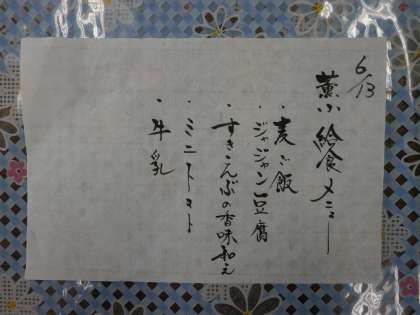 6/13
薫小 給食メニュー
・麦ご飯
・ジャジャン豆腐
・すきこんぶの香味和え
・ミニトマト
・牛乳